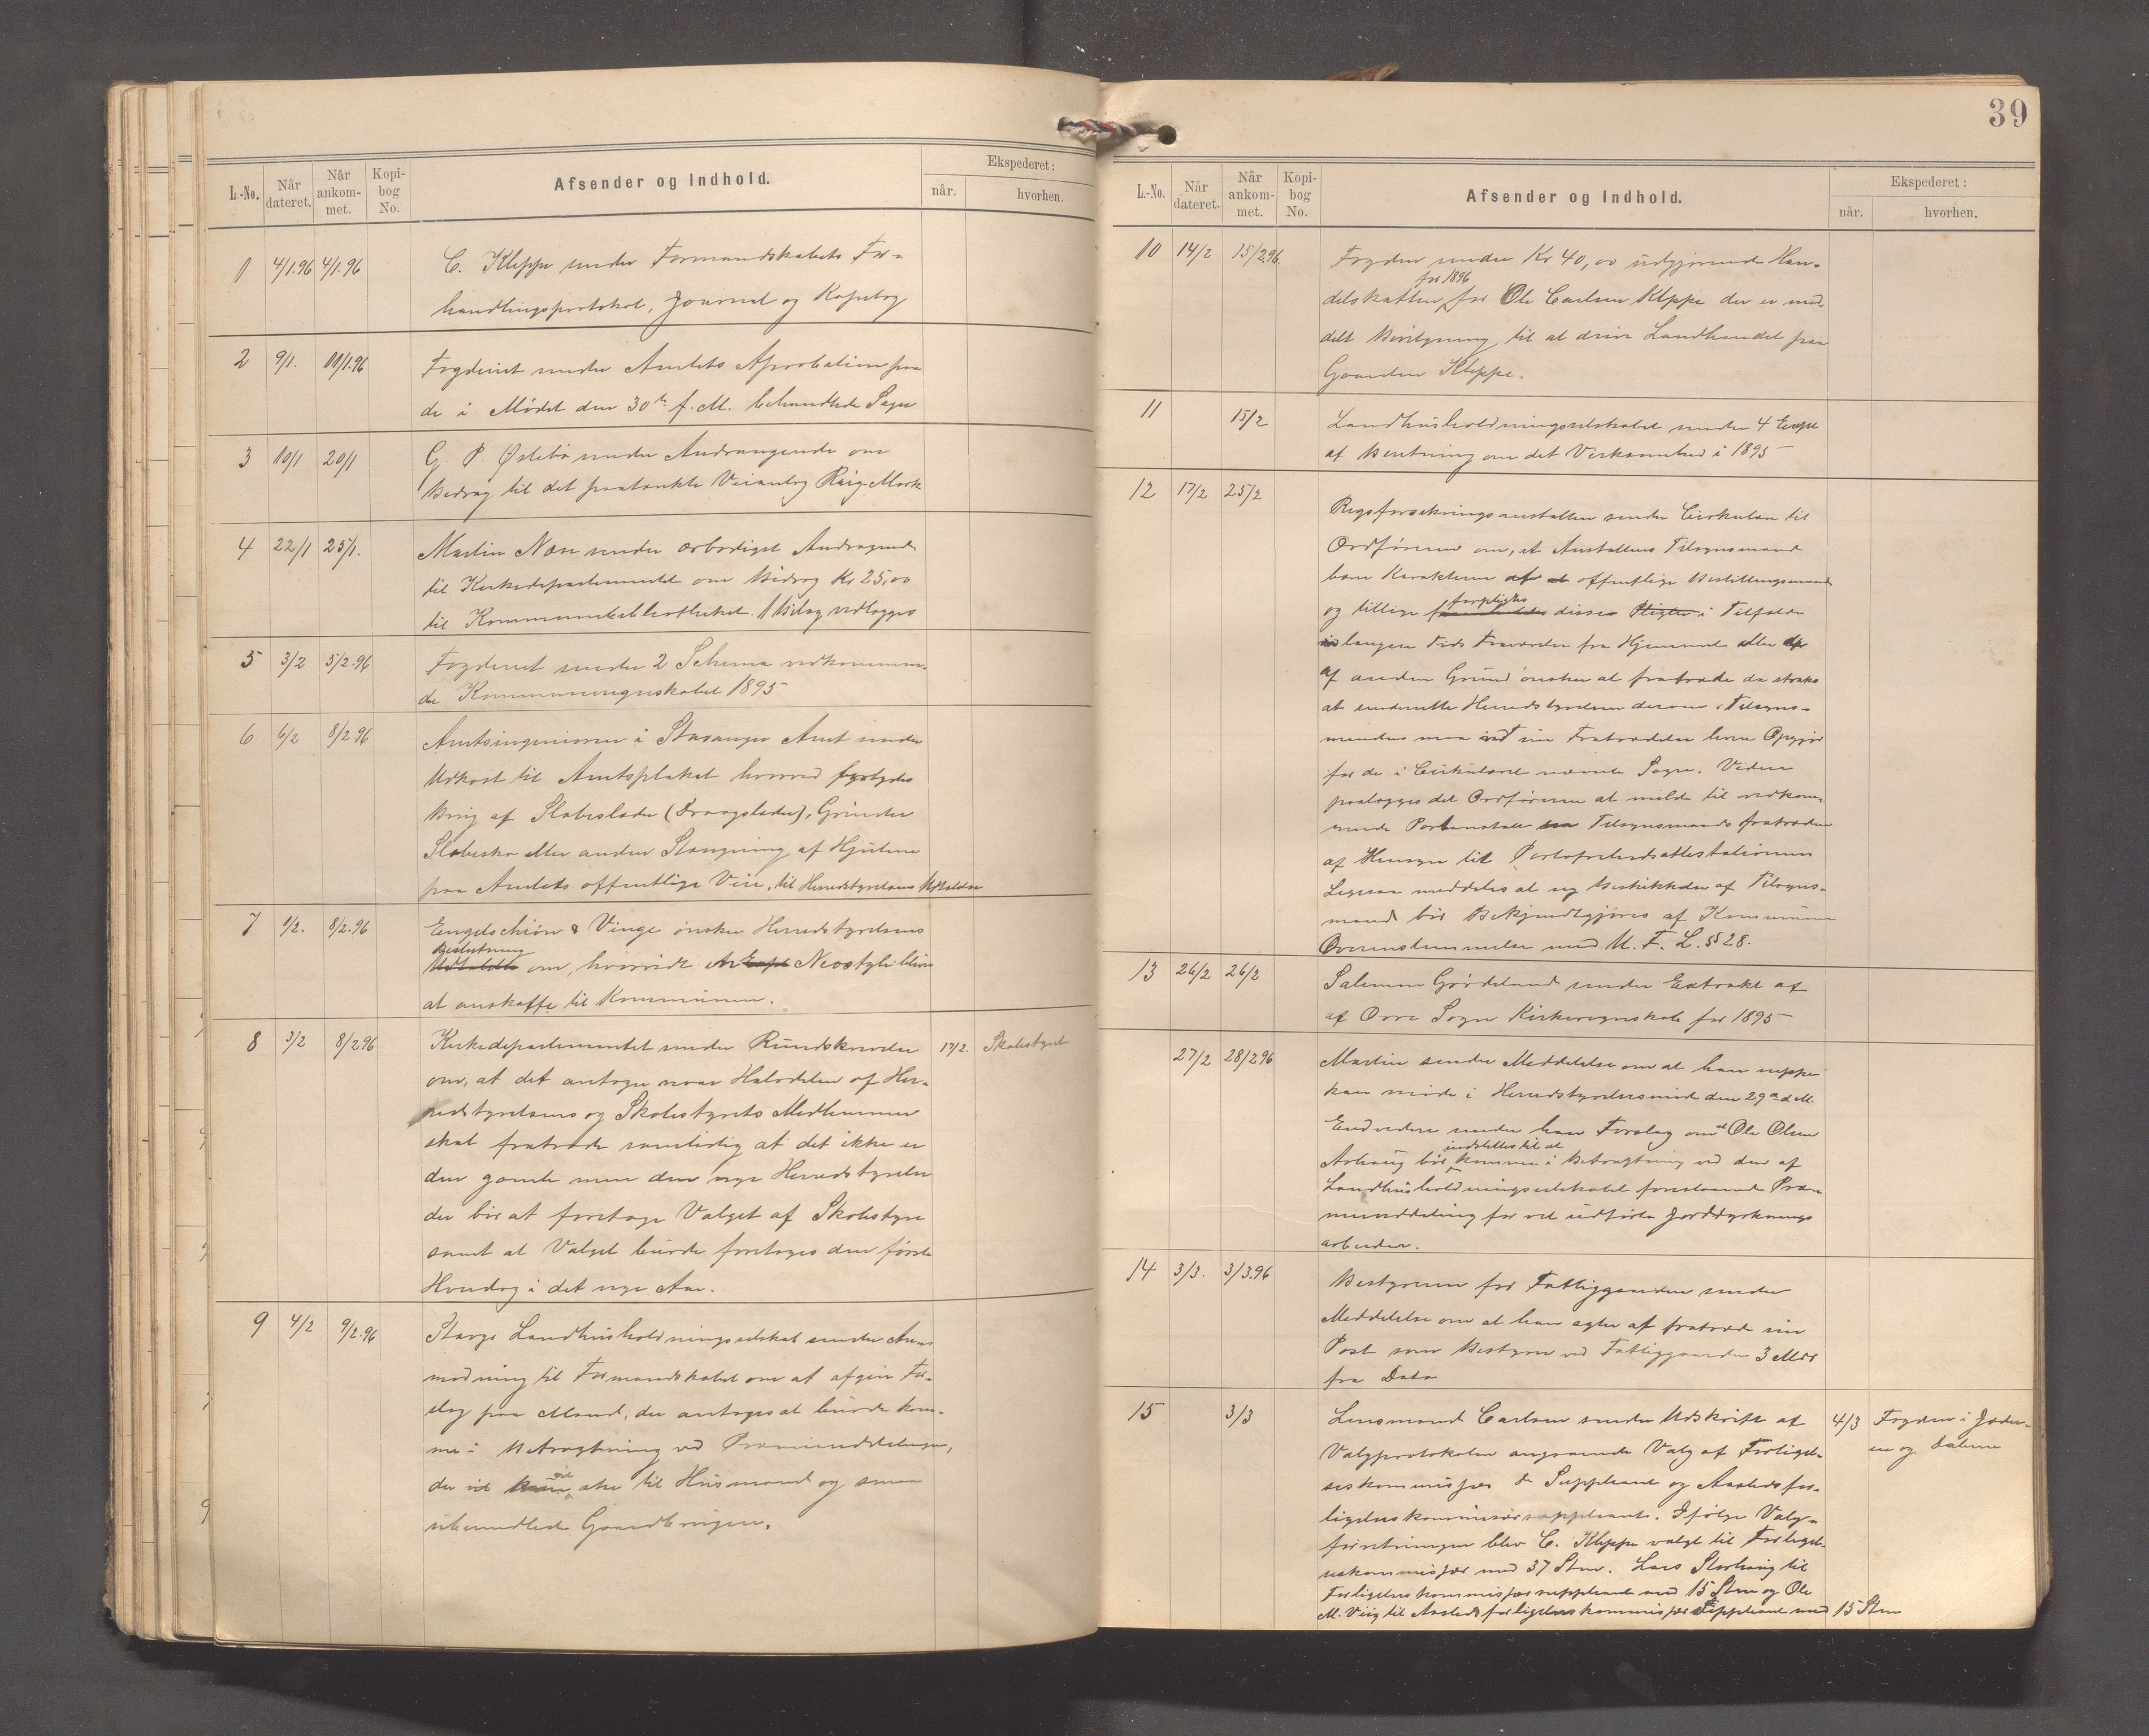 L.-No. Når dateret. Når ankommet. Kopibog No. Afsender og Indhold. Ekspederet: når. hvorhen.
1 4/1.96 4/1.96 C. Kleppe sender Formandskabets For-
handlingsprotokol, Journal og Kopibog
2 9/1. 11/1.96 Fogderiet sender Amtets Aprobation paa
de i Mødet den 30te f. M. behandlede Sager
3 10/1 20/1 G. P. Østebø sender Andragende om
Bidrag til det paatænkte Veianlæg Riig-Mark
4 22/1 25/1. Martin Nære sender ærbødigst Andragende
til Kirkedepartementet om Bidrag Kr 25,00
til Kommunebibliotheket. 1 Bilag vedlægges
5 3/2 5/2.96 Fogderiet sender 2 Schema vedkommen-
de Kommuneregnskabet 1895
6 6/2 8/2 96 Amtsingeniøren i Stavanger Amt sender
Udkast til Amtsplakat hvorved forbydes
Brug af Slæbeslæder (Draagslæder), Grinder
Slæbesko eller anden Stængning af Hjulene
paa Amtets offentlige Veie, til Herredstyrelsens Udtalelse
7 1/2. 8/2.96 Engelschiøn & Vinge ønsker Herredstyrelsens
Beslutning
Udtalelse om, hvorvidt Neostyle bliver
at anskaffe til Kommunen.
8 3/2 8/2 96 Kirkedepartementet sender Rundskrivelse 17/2. Skolestyret
om, at det antager naar Halvdelen af Her-
redstyrelsens og Skolestyrets Medlemmer
skal fratræde samtidig at det ikke er
den gamle men den nye Herredstyrelse
der bør at foretage Valget af Skolestyre
samt at Valget burde foretages den første
Hverdag i det nye Aar.
9 4/2 9/2.96 Stavgr Landhusholdningsselskab sender An-
modning til Formandskabet om at afgive For-
slag paa Mænd, der antages at burde kom-
me i Betragtning ved Præmieuddelingen,
der vil ske til Husmænd og smaa
ubemidlede Gaardbrugere.
39
L.-No. Når dateret. Når ankommet. Kopibog No. Afsender og Indhold. Ekspederet: når. hvorhen.
10 14/2 15/2.96. Fogden sender Kr 40,00 udgjørende Han-
for 1896
delskatten for Ole Carlsen Kleppe der er med-
delt Bevilgning til at drive Landhandel paa
Gaarden Kleppe.
11 15/2 Landhusholdningsselskabet sender 4 Expl
af Beretning om det Virksomhed i 1895
12 17/2 25/2 Rigsforsikringsanstalten sender Cirkulær til
Ordføreren om, at Anstaltens Tilsynsmænd
bære Karakteren af offentlige Bestillingsmænd
forpligtes
og tillige disse Pligter i Tilfælde
længere Tids Fraværelse fra Hjemmet eller
af anden Grund ønsker at fratræde da straks
at underrette Herredstyrelsen derom. Tilsyns-
mændene maa ved sin Fratrædelse have Opgjør
for de i Cirkulæret nævnte Sager. Videre
paalægges det Ordføreren at melde til vedkom-
mende Postanstalt Tilsynsmænds fratræden
af Hensyn til Portofrihedsattestationen
Ligesaa meddeles at ny Beskikkelse af Tilsyns-
mænd bør Bekjendtgjøres af Kommunen
Overensstemmelse med U. F. L. §§ 28.
13 26/2 26/2 Salemon Gördeland sender Extrakt af
af Orre Sogn Kirkeregnskab for 1895
27/2 28/2 96 Martin sender Meddelelse om at han neppe
kan møde i Herredstyrelsesmøde den 29de d. M.
Endvidere sender han Forslag om at Ole Olsen
indstilles til at
Anhaug bør komme i Betragtning ved den af
Landhusholdningsselskabet forestaaende Præ-
mieuddeling for vel udførte Jorddyrknings
arbeider.
14 3/3. 3/3.96 Bestyreren for Fattiggaarden sender
Meddelelse om at han agter at fratræde sin
Post som Bestyrer ved Fattiggaarden 3 Mdr
fra Dato
15 3/3 Lensmand Carlsen sender Udskrift af 4/3 Fogden i Jæder-
Valgprotokolen angaaende Valg af Forligel- en og Dalerne
seskommissær & Suppleant og Aastedsfor-
ligelseskommissærsuppleant. Ifølge Valg-
forretningen blev C. Kleppe valgt til Forligel-
seskommissær med 37 Stm. Lars Storhaug til
Forligelseskommissærsuppleant med 15 Stm og Ole
M. Viig til Aastedsforligelseskommissær Suppleant med 15 Stm